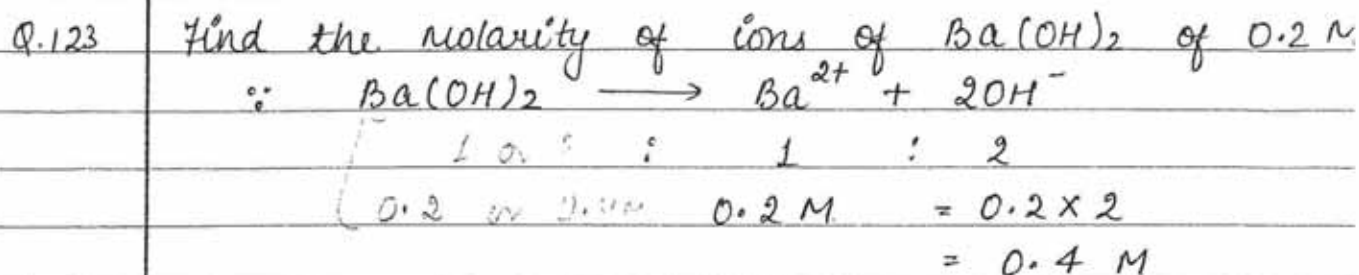 Q.123 Find the molarity of ions of Ba(OH)2 of 0.2 M
∵ Ba(OH)2 ⟶ Ba²⁺ + 2OH⁻
1 : 1 : 2
0.2 0.2 M = 0.2 × 2
= 0.4 M